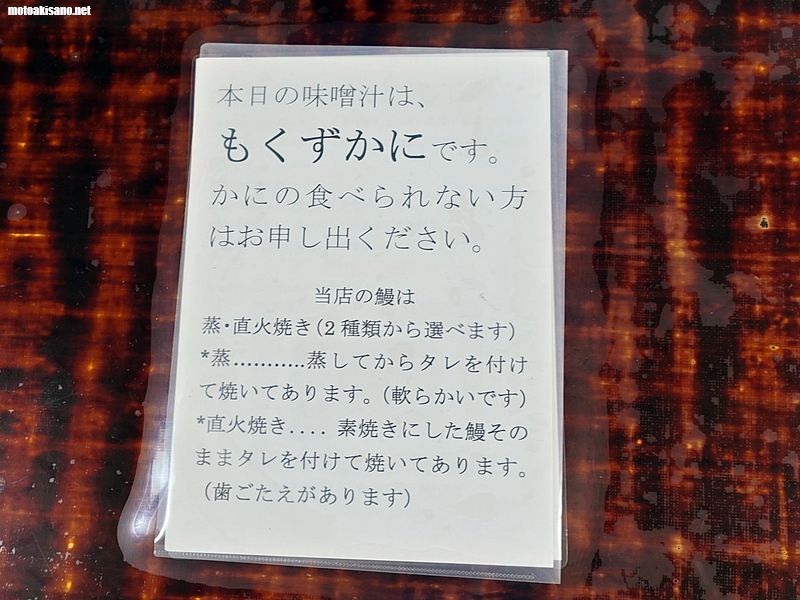 motoakisano.net
本日の味噌汁は、
もくずかにです。
かにの食べられない方
はお申し出ください。
当店の鰻は
蒸・直火焼き(2種類から選べます)
*蒸...........蒸してからタレを付け
て焼いてあります。(軟らかいです)
*直火焼き.... 素焼きにした鰻その
ままタレを付けて焼いてあります。
(歯ごたえがあります)